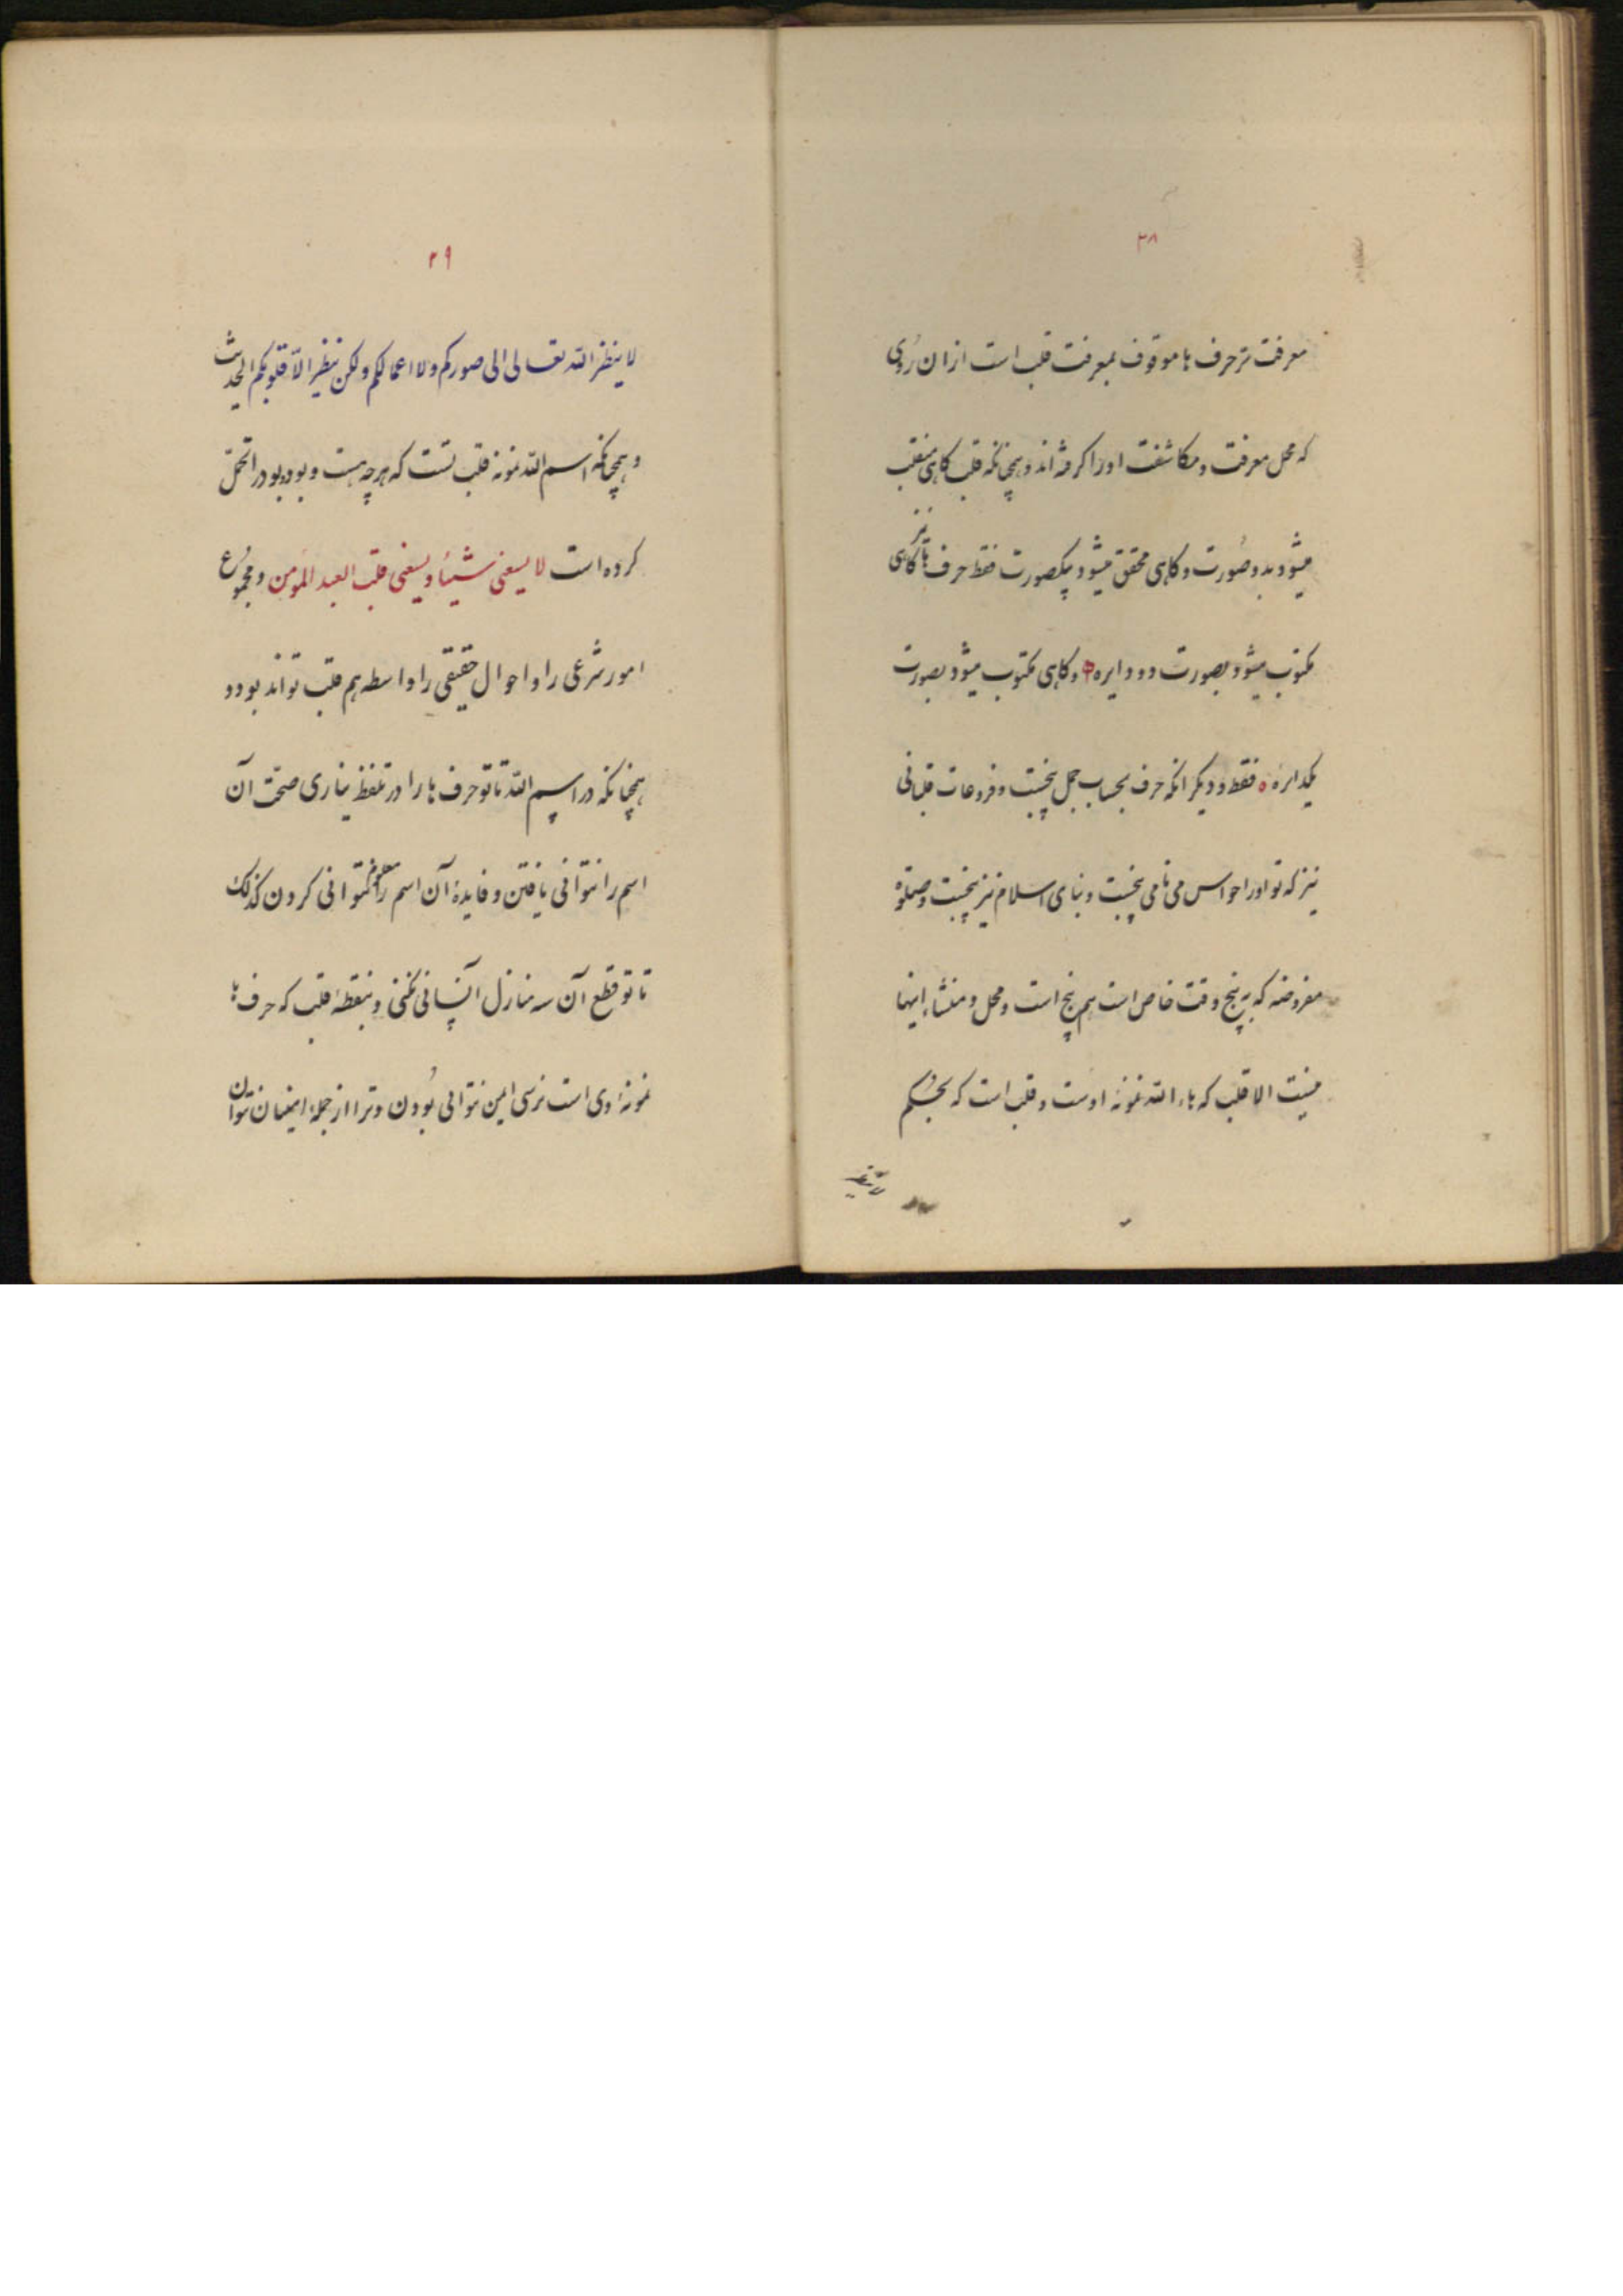 ۲۸
معرفت سر حرف ها موقوف بمعرفت قلب است از ان روی
که محل معرفت و مکاشفت او را کرفته اند و همچنانکه قلب کاهی منقلب
میشود بدو صورت و کاهی محقق میشود بیکصورت فقط حرف ها نیز کاهی
مکتوب میشود بصورت دو دایره ه وکاهی مکتوب میشود بصورت
یکدایره ه فقط و دیکر انکه حرف بحساب جمل پنجست و فروعات قلبانی
نیز که تو او را حواس می نامی پنجست و بنای اسلام نیز پنجست و صلوة
مفروضه که به پنج وقت خاص است هم پنج است و محل و منشاء اینها
نیست الا قلب که هاء الله نمونه اوست و قلب است که بحکم
لا ینظر
۲۹
لا ینظر الله تعالی الی صورکم ولا اعمالکم ولکن ینظر الی قلوبکم الحدیث
و همچنانکه اسم الله نمونه قلب تست که هرچه هست و بود و بود در اتحمل
کرده است لا یسعنی شیئا و یسعنی قلب العبد المومن و مجموع
امور شرعی را و احوال حقیقی را واسطه هم قلب تواند بود و
همچنانکه در اسم الله تا تو حرف ها را در تلفظ نیاری صحت آن
اسم را نتوانی یافتن و فایدهٔ آن اسم را معلوم نتوانی کردن کذلک
تا تو قطع آن سه منازل انسانی نکنی و بنقطهٔ قلب که حرف ها
نمونهٔ وی است نرسی امین نتوانی بودن و ترا از جملهٔ انسان نتوان